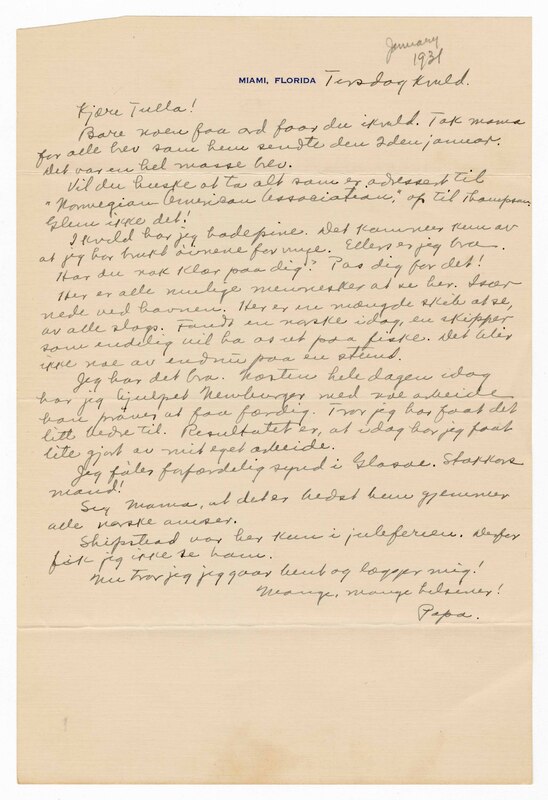 January
1931
MIAMI, FLORIDA Tirsdag kveld.
Kjære Tulla!
Bare noen faa ord faar du ikveld. Tak mama
for alle brev som hun sendte den 2den januar.
Det var en hel masse brev.
Vil du huske at ta alt som er adressert til
"Norwegian American Association," op til Thompson.
Glem ikke det!
Ikveld har jeg hodepine. Det kommer kun av
at jeg har brukt øinene for mye. Ellers er jeg bra.
Har du nok klær paa dig? Pas dig for det!
Her er alle mulige mennesker at se her. Især
nede ved havnen. Her er en mængde skib at se,
av alle slags. Fandt en norske idag, en skipper
som endelig vil ha os ut paa fiske. Det blir
ikke noe av endnu paa en stund.
Jeg har det bra. Næsten hele dagen idag
har jeg hjulpet Newburger med noe arbeide
han prøver at faa færdig. Tror jeg har faat det
litt bedre til. Resultatet er, at idag har jeg faat
lite gjort av mit eget arbeide.
Jeg føler forfærdelig synd i Glasoe. Stakkars
mand!
Sig Mama, at det er bedst hun gjemmer
alle norske aviser.
Shipstead var her kun i juleferien. Derfor
fik jeg ikke se ham.
Nu tror jeg jeg gaar hen og lægger mig!
Mange, mange hilsener!
Papa.